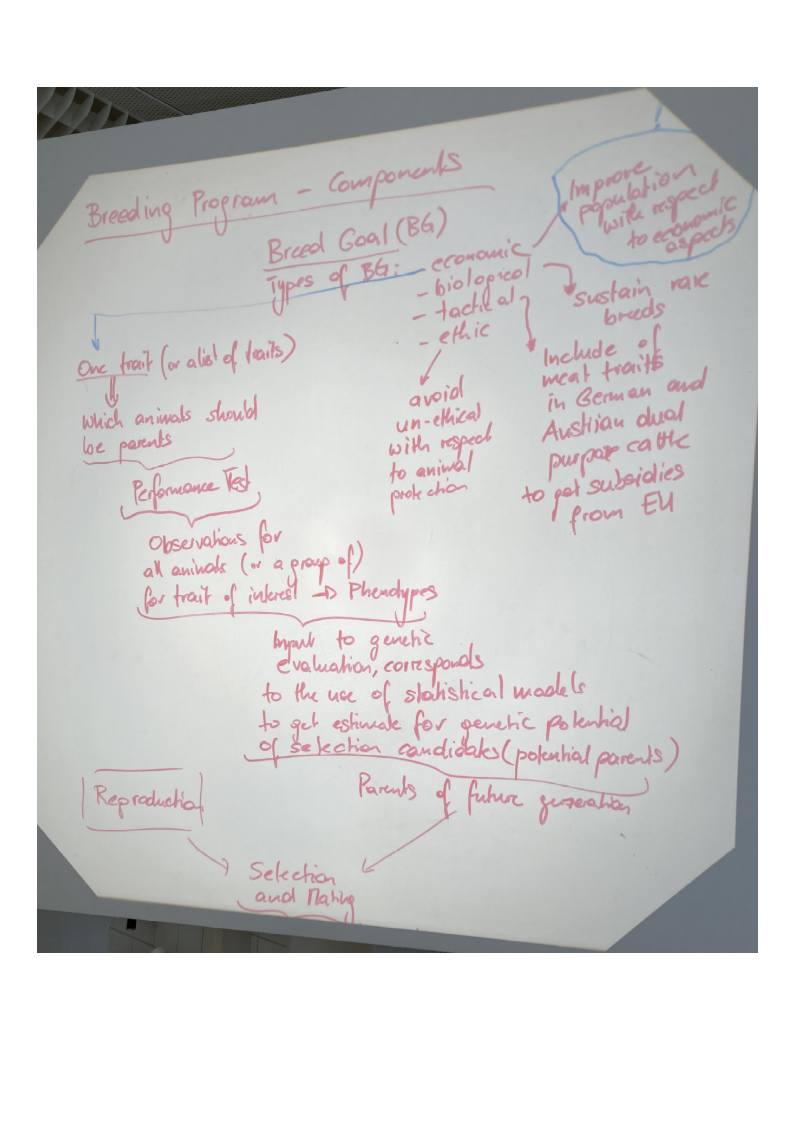 Breeding Program - Components
Breed Goal (BG)
Types of BG: - economic
- biological
- tactical
- ethic
Improve
population
with respect
to economic
aspects
sustain rare
breeds
Include of
meat traits
in German and
Austrian dual
purpose cattle
to get subsidies
from EU
avoid
un-ethical
with respect
to animal
protection
One trait (or a list of traits)
which animals should
be parents
Performance Test
Observations for
all animals (or a group of)
for trait of interest → Phenotypes
Input to genetic
evaluation, corresponds
to the use of statistical models
to get estimate for genetic potential
of selection candidates (potential parents)
Parents of future generation
Reproduction
Selection
and Mating